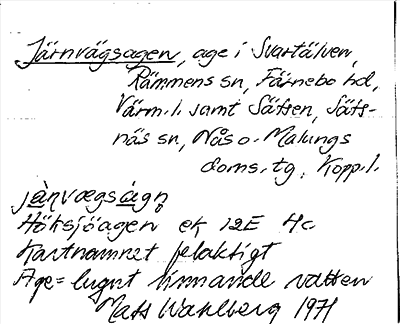 Järnvägsagen, age i Svartälven,
Rämmens sn, Färnebo hd,
Värm. l. samt Sätten, Säfs-
näs sn, Nås o. Malungs
doms. tg, Kopp. l.
jànvægságn̥
Höksjöagen ek 12E 4c
Kartnamnet felaktigt
Age = lugnt rinnande vatten
Mats Wahlberg 1971